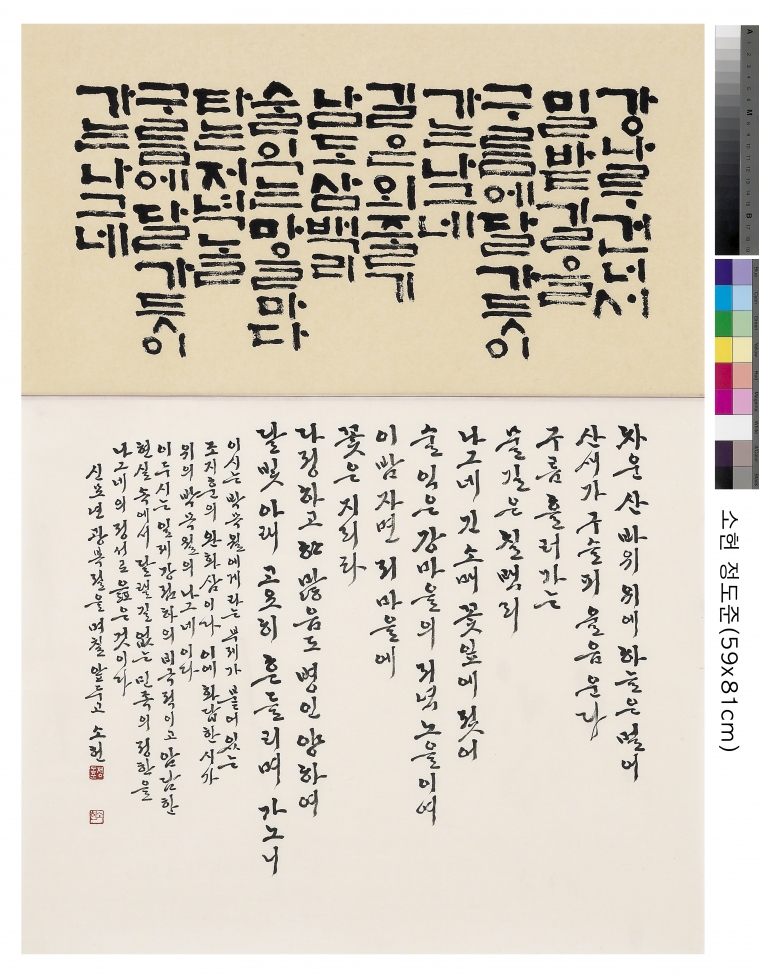 강나루 건너서
밀밭 길을
구름에 달 가듯이
가는 나그네
길은 외줄기
남도 삼백리
술익는 마을마다
타는 저녁놀
구름에 달 가듯이
가는 나그네
차운 산 바위 위에 하늘은 멀어
산새가 구슬피 울음 운다
구름 흘러가는
물길은 칠백리
나그네 긴 소매 꽃잎에 젖어
술 익은 강마을의 저녁 노을이여
이 밤 자면 저 마을에
꽃은 지리라
다정하고 한 많음도 병인 양하여
달빛 아래 고요히 흔들리며 가노니
이 시는 박목월에게라는 부제가 붙어있는
조지훈의 완화삼이다 이에 화답한 시가
위의 박목월의 나그네이다
이 두시는 일제강점하의 비극적이고 암담한
현실 속에서 달랠길 없는 민족의 정한을
나그네의 정서로 읊은 것이다
신묘년 광복절을 며칠 앞두고 소헌
소헌 정도준(59x81cm)